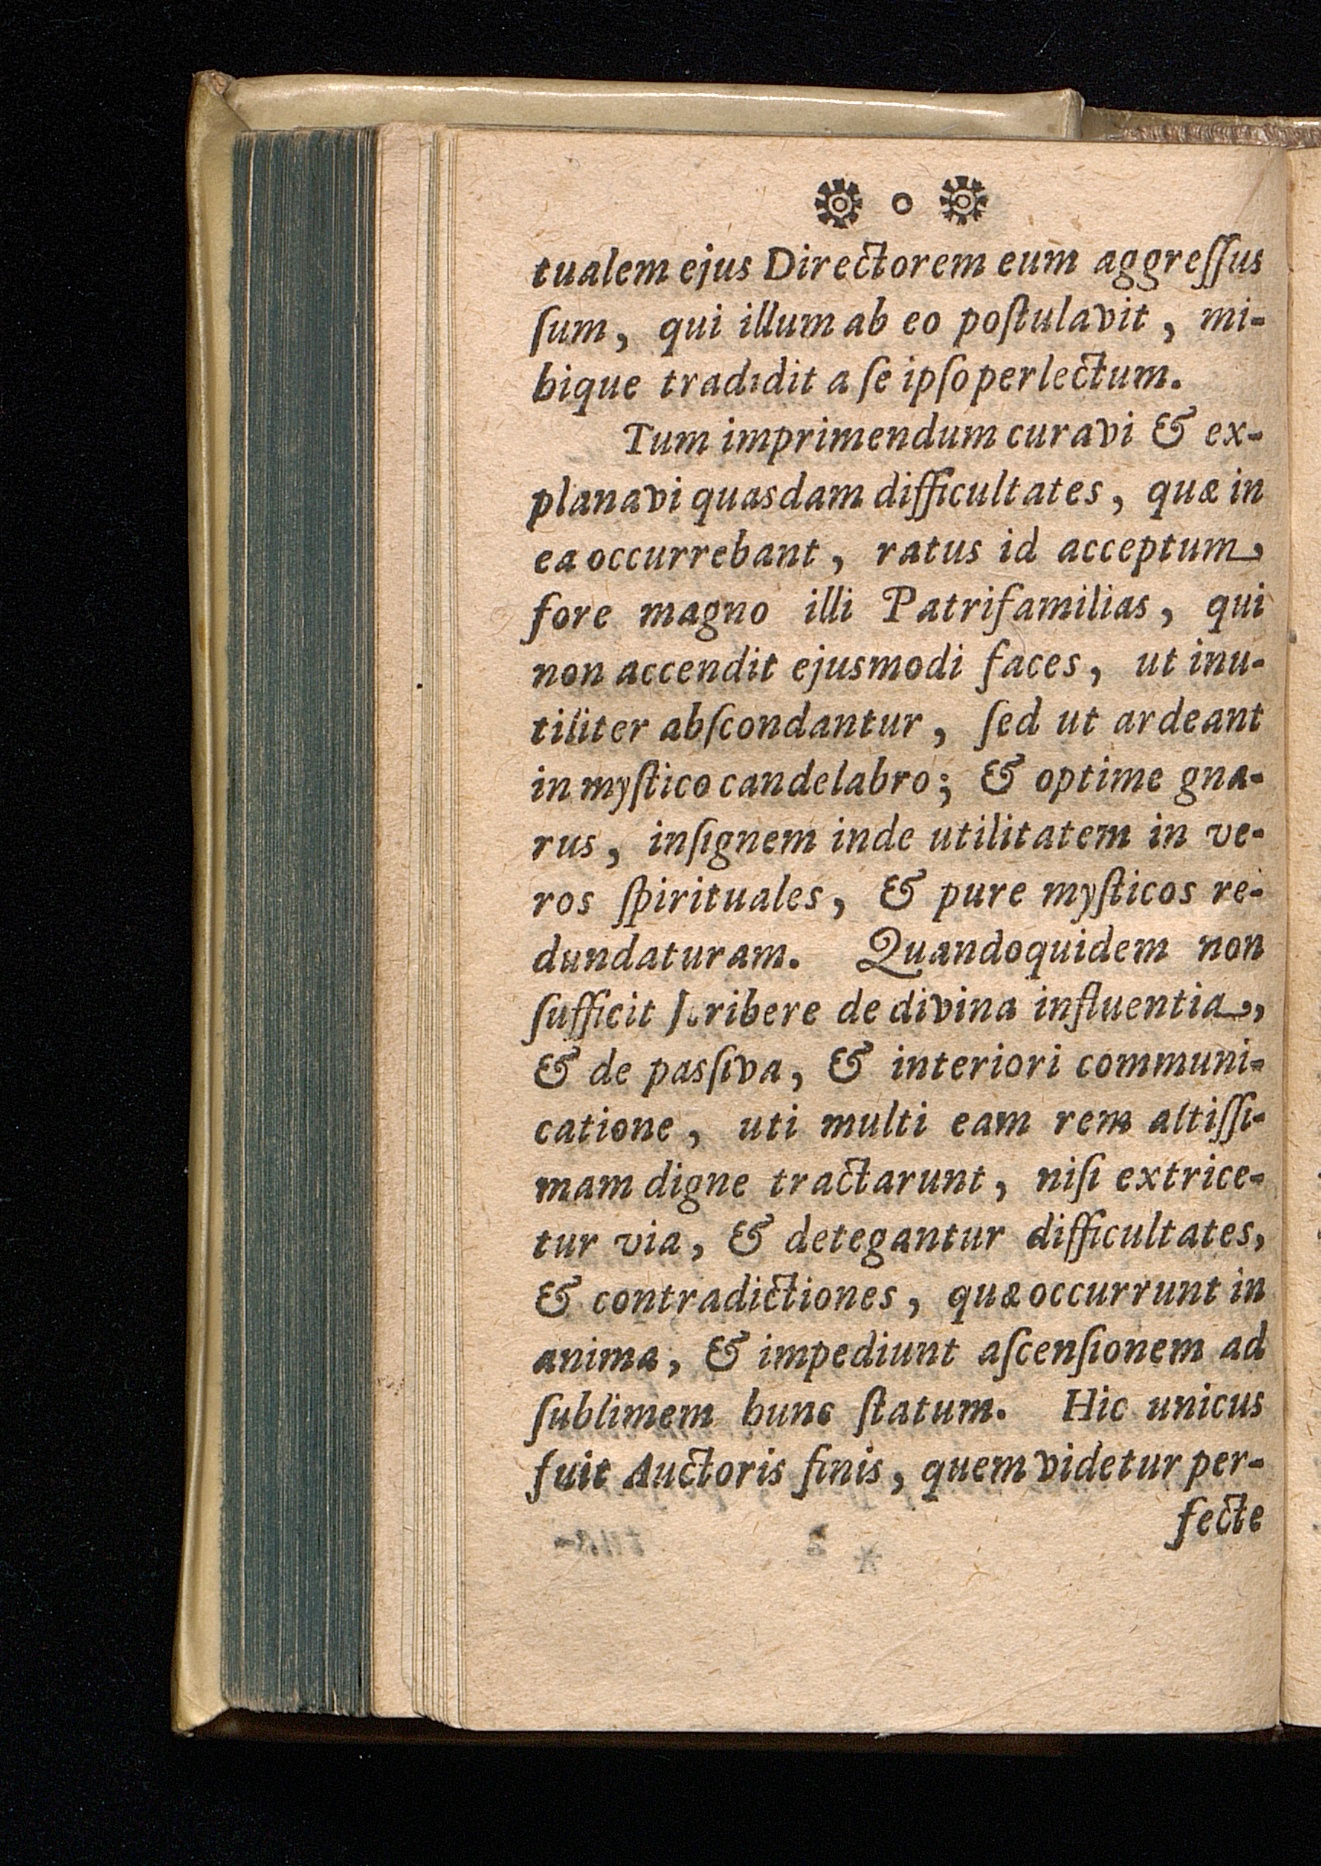 tualem ejus Directorem eum aggreſſus
ſum, qui illum ab eo poſtulavit, mi-
hique tradidit a ſe ipſo perlectum.
Tum imprimendum curavi & ex-
planavi quasdam difficultates, quæ in
ea occurrebant, ratus id acceptum,
fore magno illi Patrifamilias, qui
non accendit ejusmodi faces, ut inu-
tiliter abſcondantur, ſed ut ardeant
in myſtico candelabro; & optime gna-
rus, inſignem inde utilitatem in ve-
ros ſpirituales, & pure myſticos re-
dundaturam. Quandoquidem non
ſufficit ſcribere de divina influentia,
& de pasſiva, & interiori communi-
catione, uti multi eam rem altiſſi-
mam digne tractarunt, niſi extrice-
tur via, & detegantur difficultates,
& contradictiones, quæ occurrunt in
anima, & impediunt aſcenſionem ad
ſublimem hunc ſtatum. Hic unicus
fuit Auctoris finis, quem videtur per-
fecte